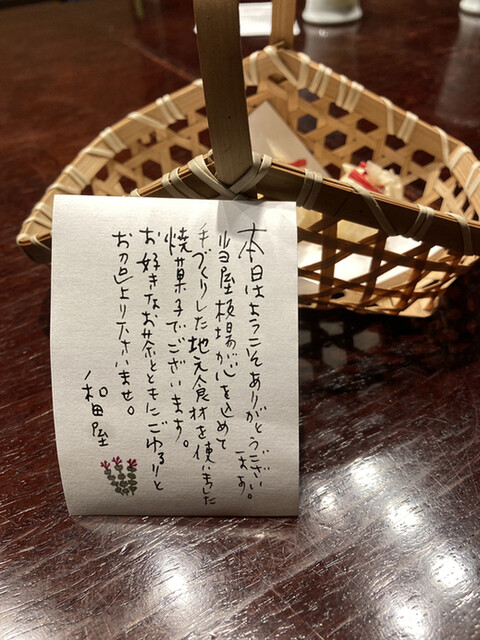 本日はようこそありがとうございます。
当屋板場が心を込めて
手づくりした地元食材を使いました
焼菓子でございます。
お好きなお茶とともにごゆるりと
お召上り下さいませ。
和田屋